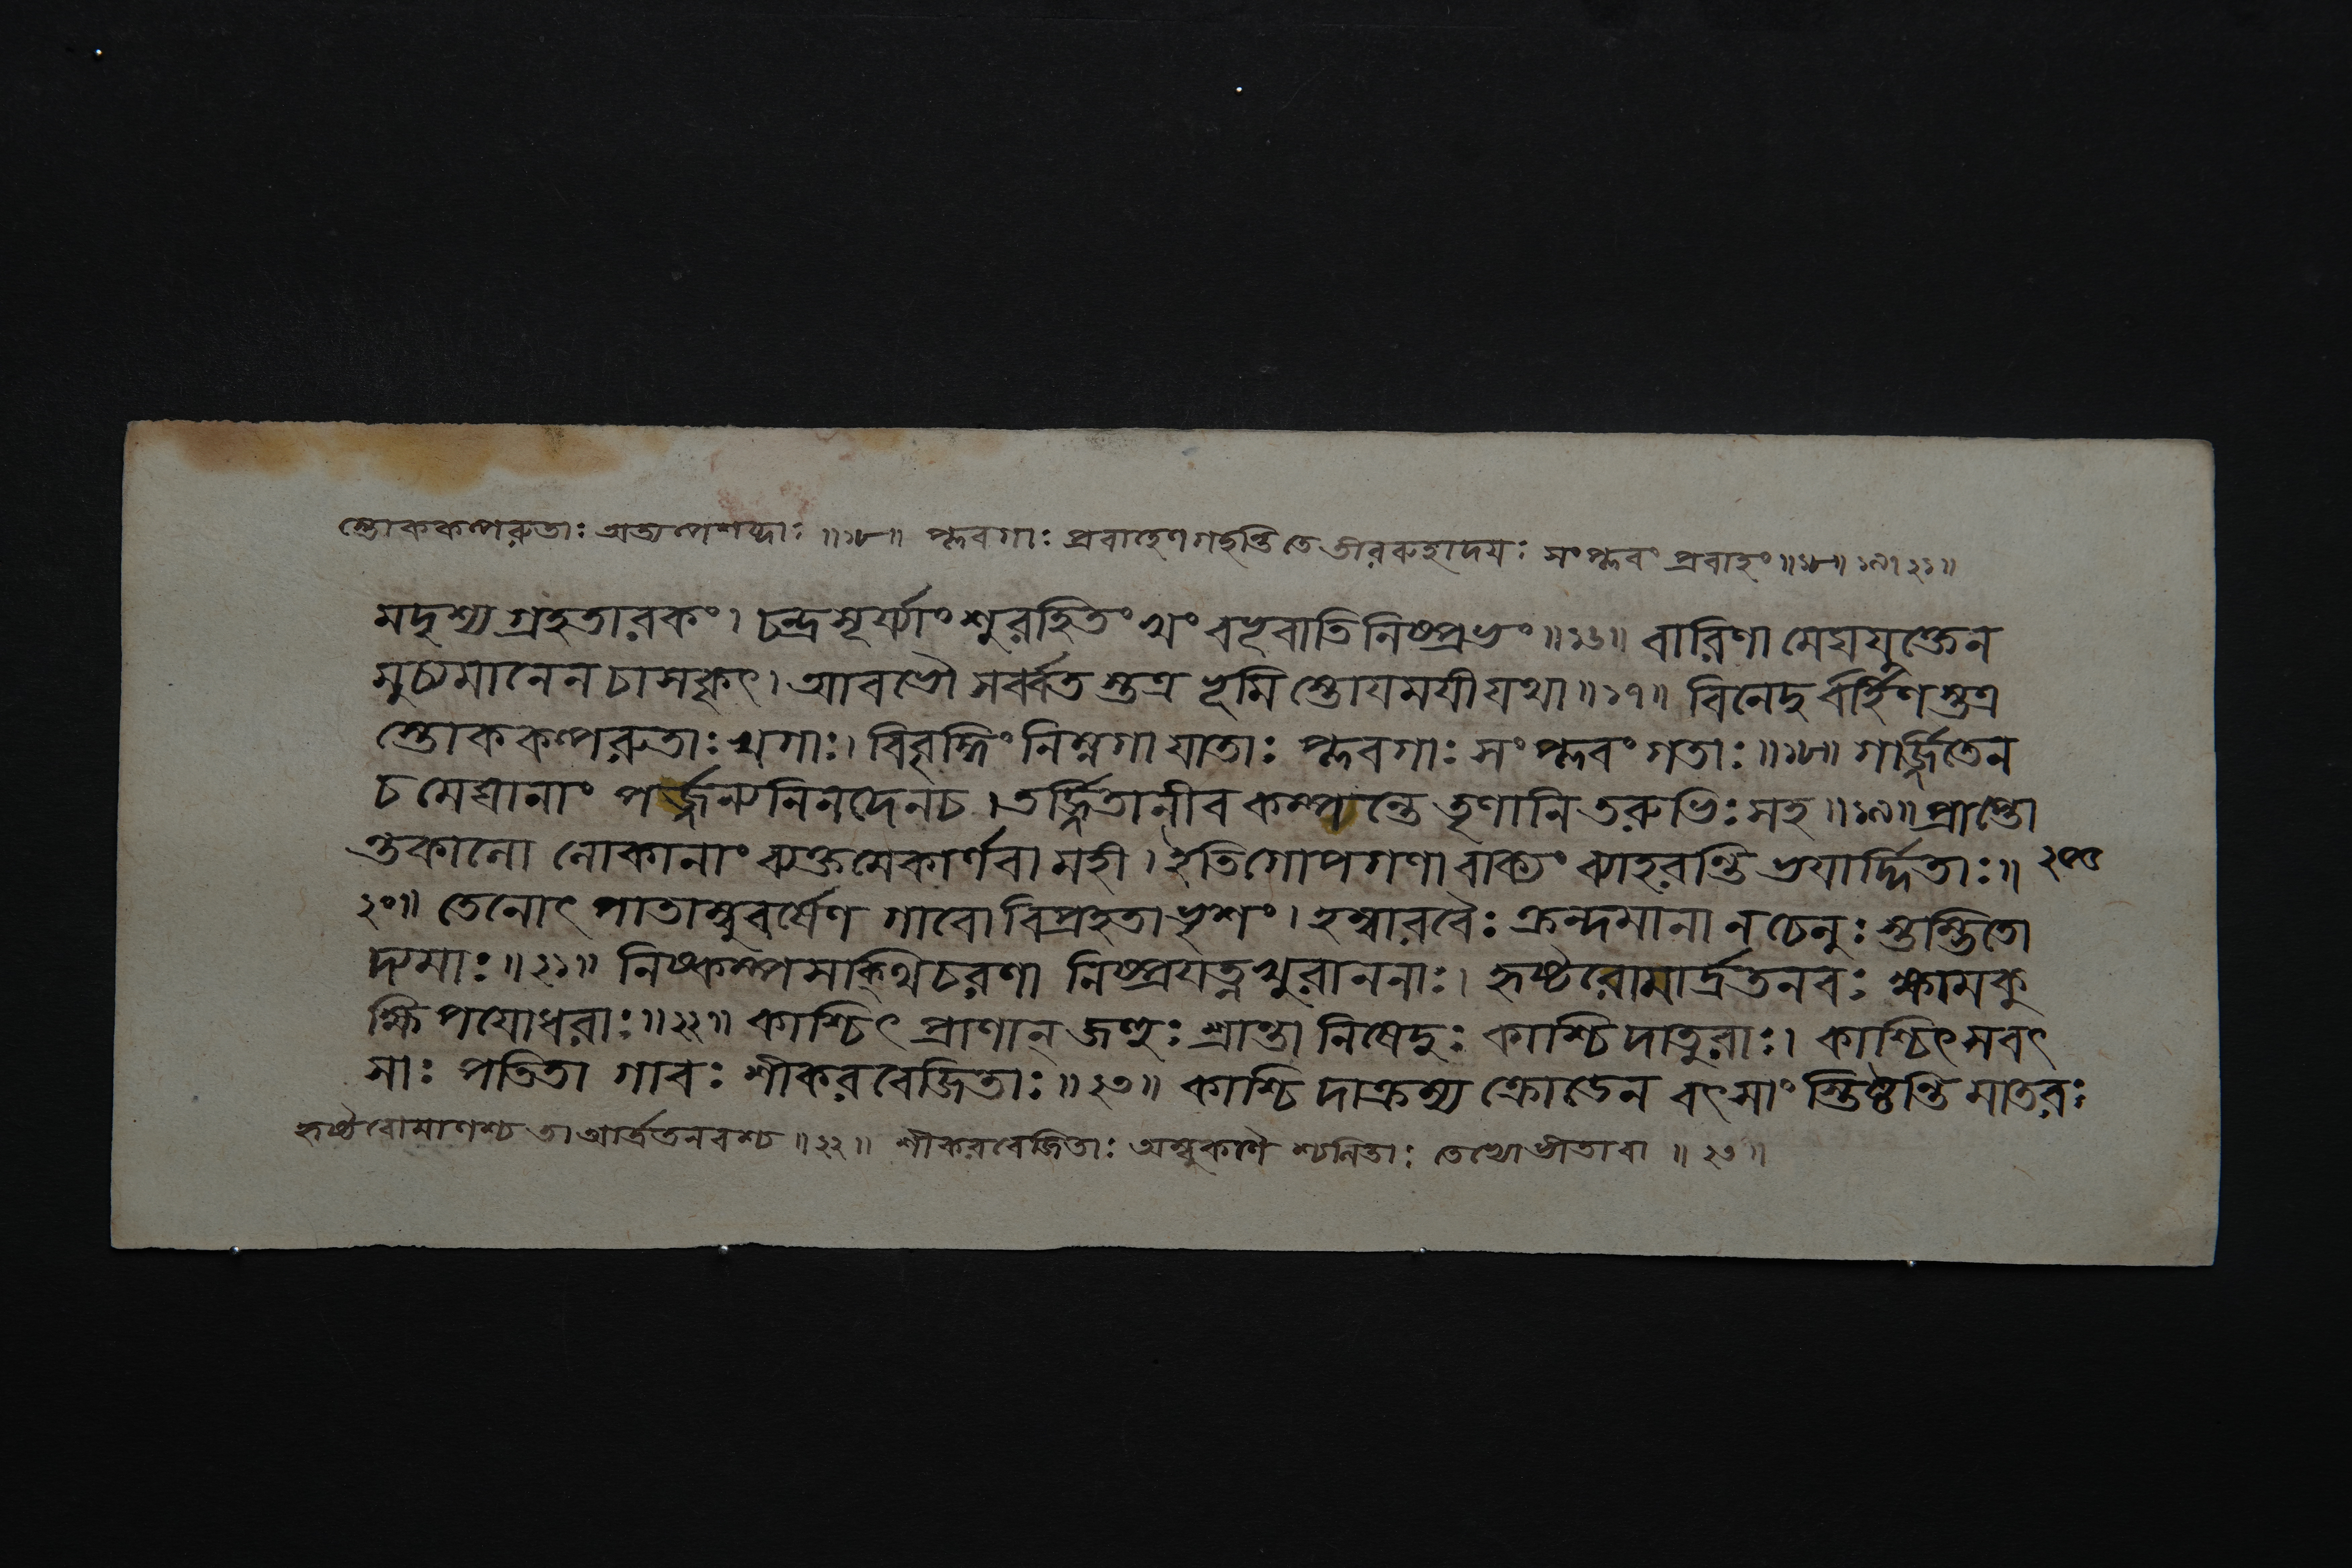 স্তোককল্পরুতাঃ অত্যল্পশব্দাঃ ॥১৮॥ প্লবগাঃ প্রবাহেণ গচ্ছন্তি তে তীররুহাদয়ঃ সংপ্লবং প্রবাহং ॥১৮॥১৯।২১॥
মদৃশ্যগ্রহতারকং। চন্দ্রসূর্য্যাংশুরহিতং খং বভূবাতিনিষ্প্রভং॥১৬॥ বারিণা মেঘযুক্তেন
মুচ্যমানেন চাসকৃৎ। আবভৌ সর্ব্বতস্তত্র ভূমিস্তোয়ময়ী যথা॥১৭॥ বিনেদুর্বর্হিণস্তত্র
স্তোককল্পরুতাঃ খগাঃ। বিবৃদ্ধিং নিম্নগা যাতাঃ প্লবগাঃ সংপ্লবং গতাঃ॥১৮॥ গর্জ্জিতেন
চ মেঘানাং পর্জ্জন্যনিনদেন চ। তর্জ্জিতানীব কম্পন্তে তৃণানি তরুভিঃ সহ॥১৯॥ প্রাপ্তো
ন্তকালো লোকানাং ব্যক্তমেকার্ণবা মহী। ইতি গোপগণা বাক্যং ব্যাহরন্তি ভয়ার্দ্দিতাঃ॥ ২৭৫
২০॥ তেনোৎপাতাম্বুবর্ষেণ গাবো বিপ্রহতা ভৃশং। হম্বারবৈঃ ক্রন্দমানা ন চেলুঃ স্তম্ভিতো
দ্যমাঃ॥২১॥ নিষ্কম্পসক্থিচরণা নিষ্প্রযত্নখুরাননাঃ। হৃষ্টরোমার্দ্রতনবঃ ক্ষামকু
ক্ষিপয়োধরাঃ॥২২॥ কাশ্চিৎ প্রাণান্ জহুঃ শ্রান্তা নিষেদুঃ কাশ্চিদাতুরাঃ। কাশ্চিৎ সবৎ
সাঃ পতিতা গাবঃ শীকরবেজিতাঃ॥২৩॥ কাশ্চিদাক্রম্য ক্রোডেন বৎসাংস্তিষ্ঠন্তি মাতরঃ
হৃষ্টরোমাণশ্চ তা আর্দ্রতনবশ্চ ॥২২॥ শীকরবেজিতাঃ অম্বুকণৈশ্চলিতাঃ তেভ্যো ভীতা বা ॥২৩॥